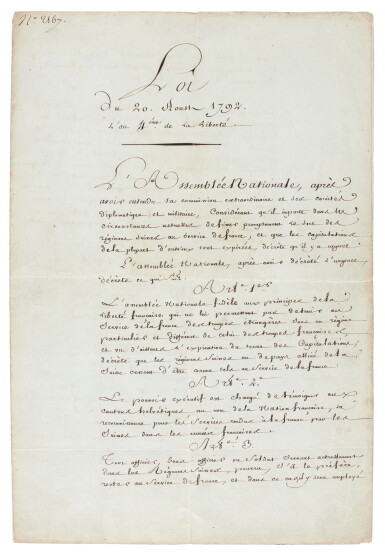 N.º 2167.
Loi
Du 20. Aoust 1792.
L'an 4.ème de la Liberté
L'Assemblée Nationale, après
avoir entendu sa commission extraordinaire et des comités
diplomatique et militaire, Considérant qu'il importe dans les
circonstances actuelles de fixer promptement le sort des
régimens suisses au service de france, et que les capitulations
de la plupart d'entr'eux sont expirées, décrète qu'il y a urgence.
L'assemblée Nationale, après avoir décrété l'urgence,
décrète ce qui suit.
Art. 1.er
L'assemblée Nationale fidèle aux principes de la
liberté française qui ne lui permettent pas de tenir au
Service de la france des troupes étrangères sous un régime
particulier et différent de celui des troupes françaises,
et vu d'ailleurs l'expiration du terme des Capitulations,
décrète que les régimens Suisses ou de pays alliés de la
Suisse cessent d'être comme tels au Service de la france.
Art. 2.
Le pouvoir exécutif est chargé de témoigner aux
Cantons helvétiques au nom de la Nation française, sa
reconnaissance pour les Services rendus à la france par les
Suisses dans les armées françaises.
Art. 3.
Tout officier, Sous officier ou Soldat Servant actuellement
dans les Régimens Suisses, pourra, s'il le préfère,
rester au Service de france, et dans ce cas, il y sera employé